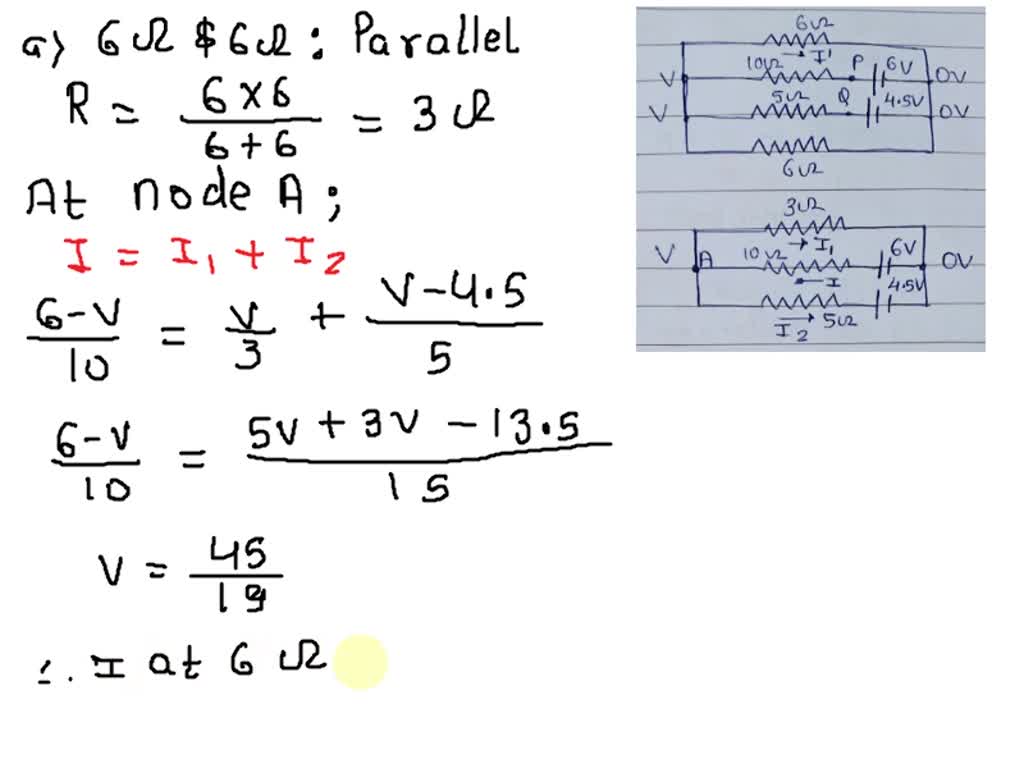 a) 6Ω $ 6Ω : Parallel
R = 6 × 6 / 6 + 6 = 3 Ω
At node A ;
I = I₁ + I₂
6-V / 10 = V / 3 + V-4.5 / 5
6-V / 10 = 5V + 3V - 13.5 / 15
V = 45 / 19
∴. I at 6 Ω
6Ω
→ I'
10Ω P 6V
V 0V
5Ω Q 4.5V
V 0V
6Ω
3Ω
→ I₁
V A 10Ω 6V 0V
← I 4.5V
→ I₂ 5Ω